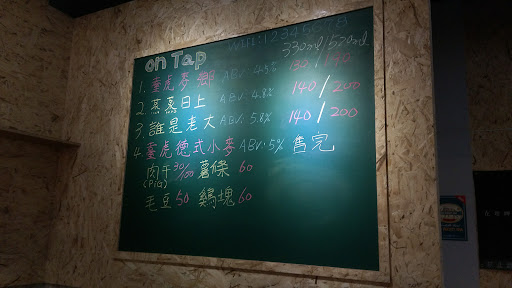 on Tap
WIFI:12345678
330ml/520ml
1.臺虎麥 ABV:4.5% 130/190
2.蒸蒸日上 ABV:4.8% 140/200
3.誰是老大 ABV:5.8% 140/200
4.臺虎德式小麥 ABV:5% 售完
肉干30/100 薯條60
(PIG)
毛豆50 鷄塊60